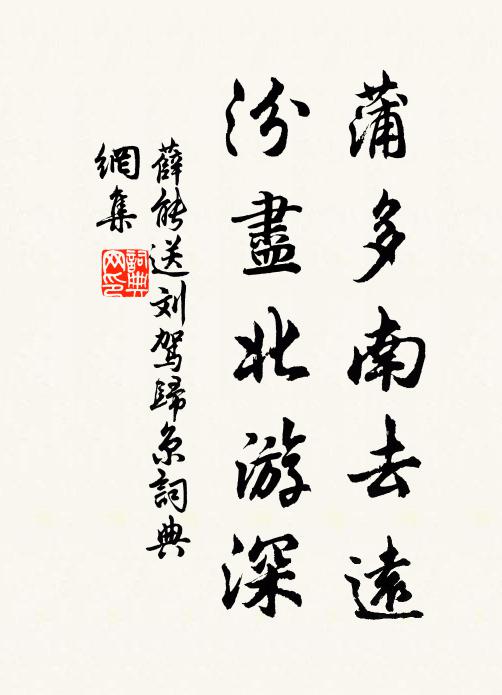 蒲多南去遠
汾盡北游深
薛能送刘駕歸京詞典
網集
詞典
网印